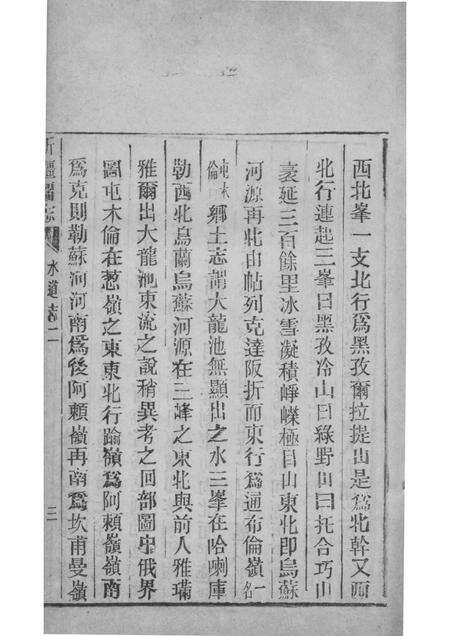 西北峯一支北行爲黑孜爾拉提山是爲北幹又西
北行連起三峯曰黑孜冷山曰綠野山曰托合巧山
袤延三百餘里冰雪凝積崢嶸極目山東北即烏蘇
河源再北由帖列克達阪折而東行爲通布倫嶺一名
屯木倫鄉土志謂大龍池無顯出之水三峯在哈喇庫
勒西北烏蘭烏蘇河源在三峰之東北與前人雅璊
雅爾出大龍池東流之說稍異考之回部圖中俄界
圖屯木倫在葱嶺之東東北行踰嶺爲阿賴嶺嶺南
爲克則勒蘇河河南爲後阿賴嶺再南爲坎甫曼嶺
新疆圖志
水道志二
三